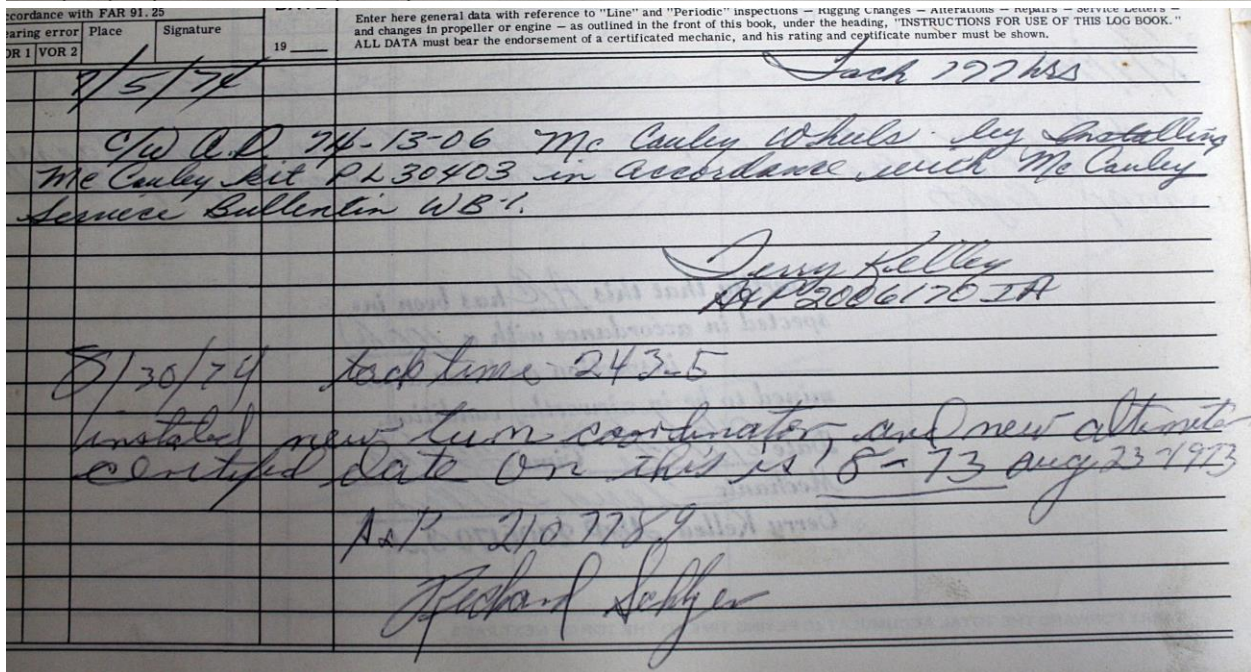 accordance with FAR 91.25
earing error Place Signature
OR 1 VOR 2
19
Enter here general data with reference to "Line" and "Periodic" inspections — Rigging Changes — Alterations — Repairs — Service Letters —
and changes in propeller or engine — as outlined in the front of this book, under the heading, "INSTRUCTIONS FOR USE OF THIS LOG BOOK."
ALL DATA must bear the endorsement of a certificated mechanic, and his rating and certificate number must be shown.
7/5/74 Tach 177 hrs
C/W A.D. 74-13-06 Mc Cauley Wheels by Installing
Mc Cauley kit PL30403 in accordance with Mc Cauley
Service Bullentin WB-1.
Jerry Kelley
A&P 2006170 IA
8/30/74 tach time 243.5
instaled new turn coordinator, and new altimeter
certifed date on this is 8-73 Aug 23-1973
A&P 2107789
Richard